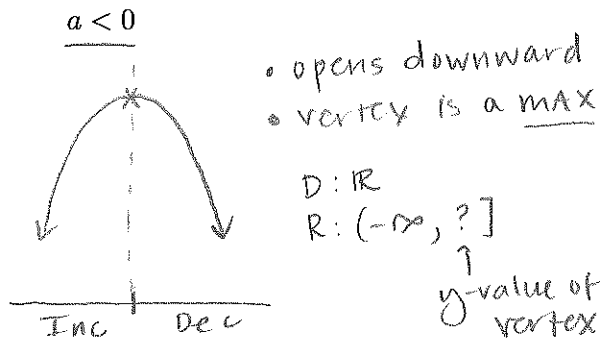 a < 0
• opens downward
• vertex is a MAX
D: ℝ
R: (-∞, ?]
y-value of
vertex
Inc Dec